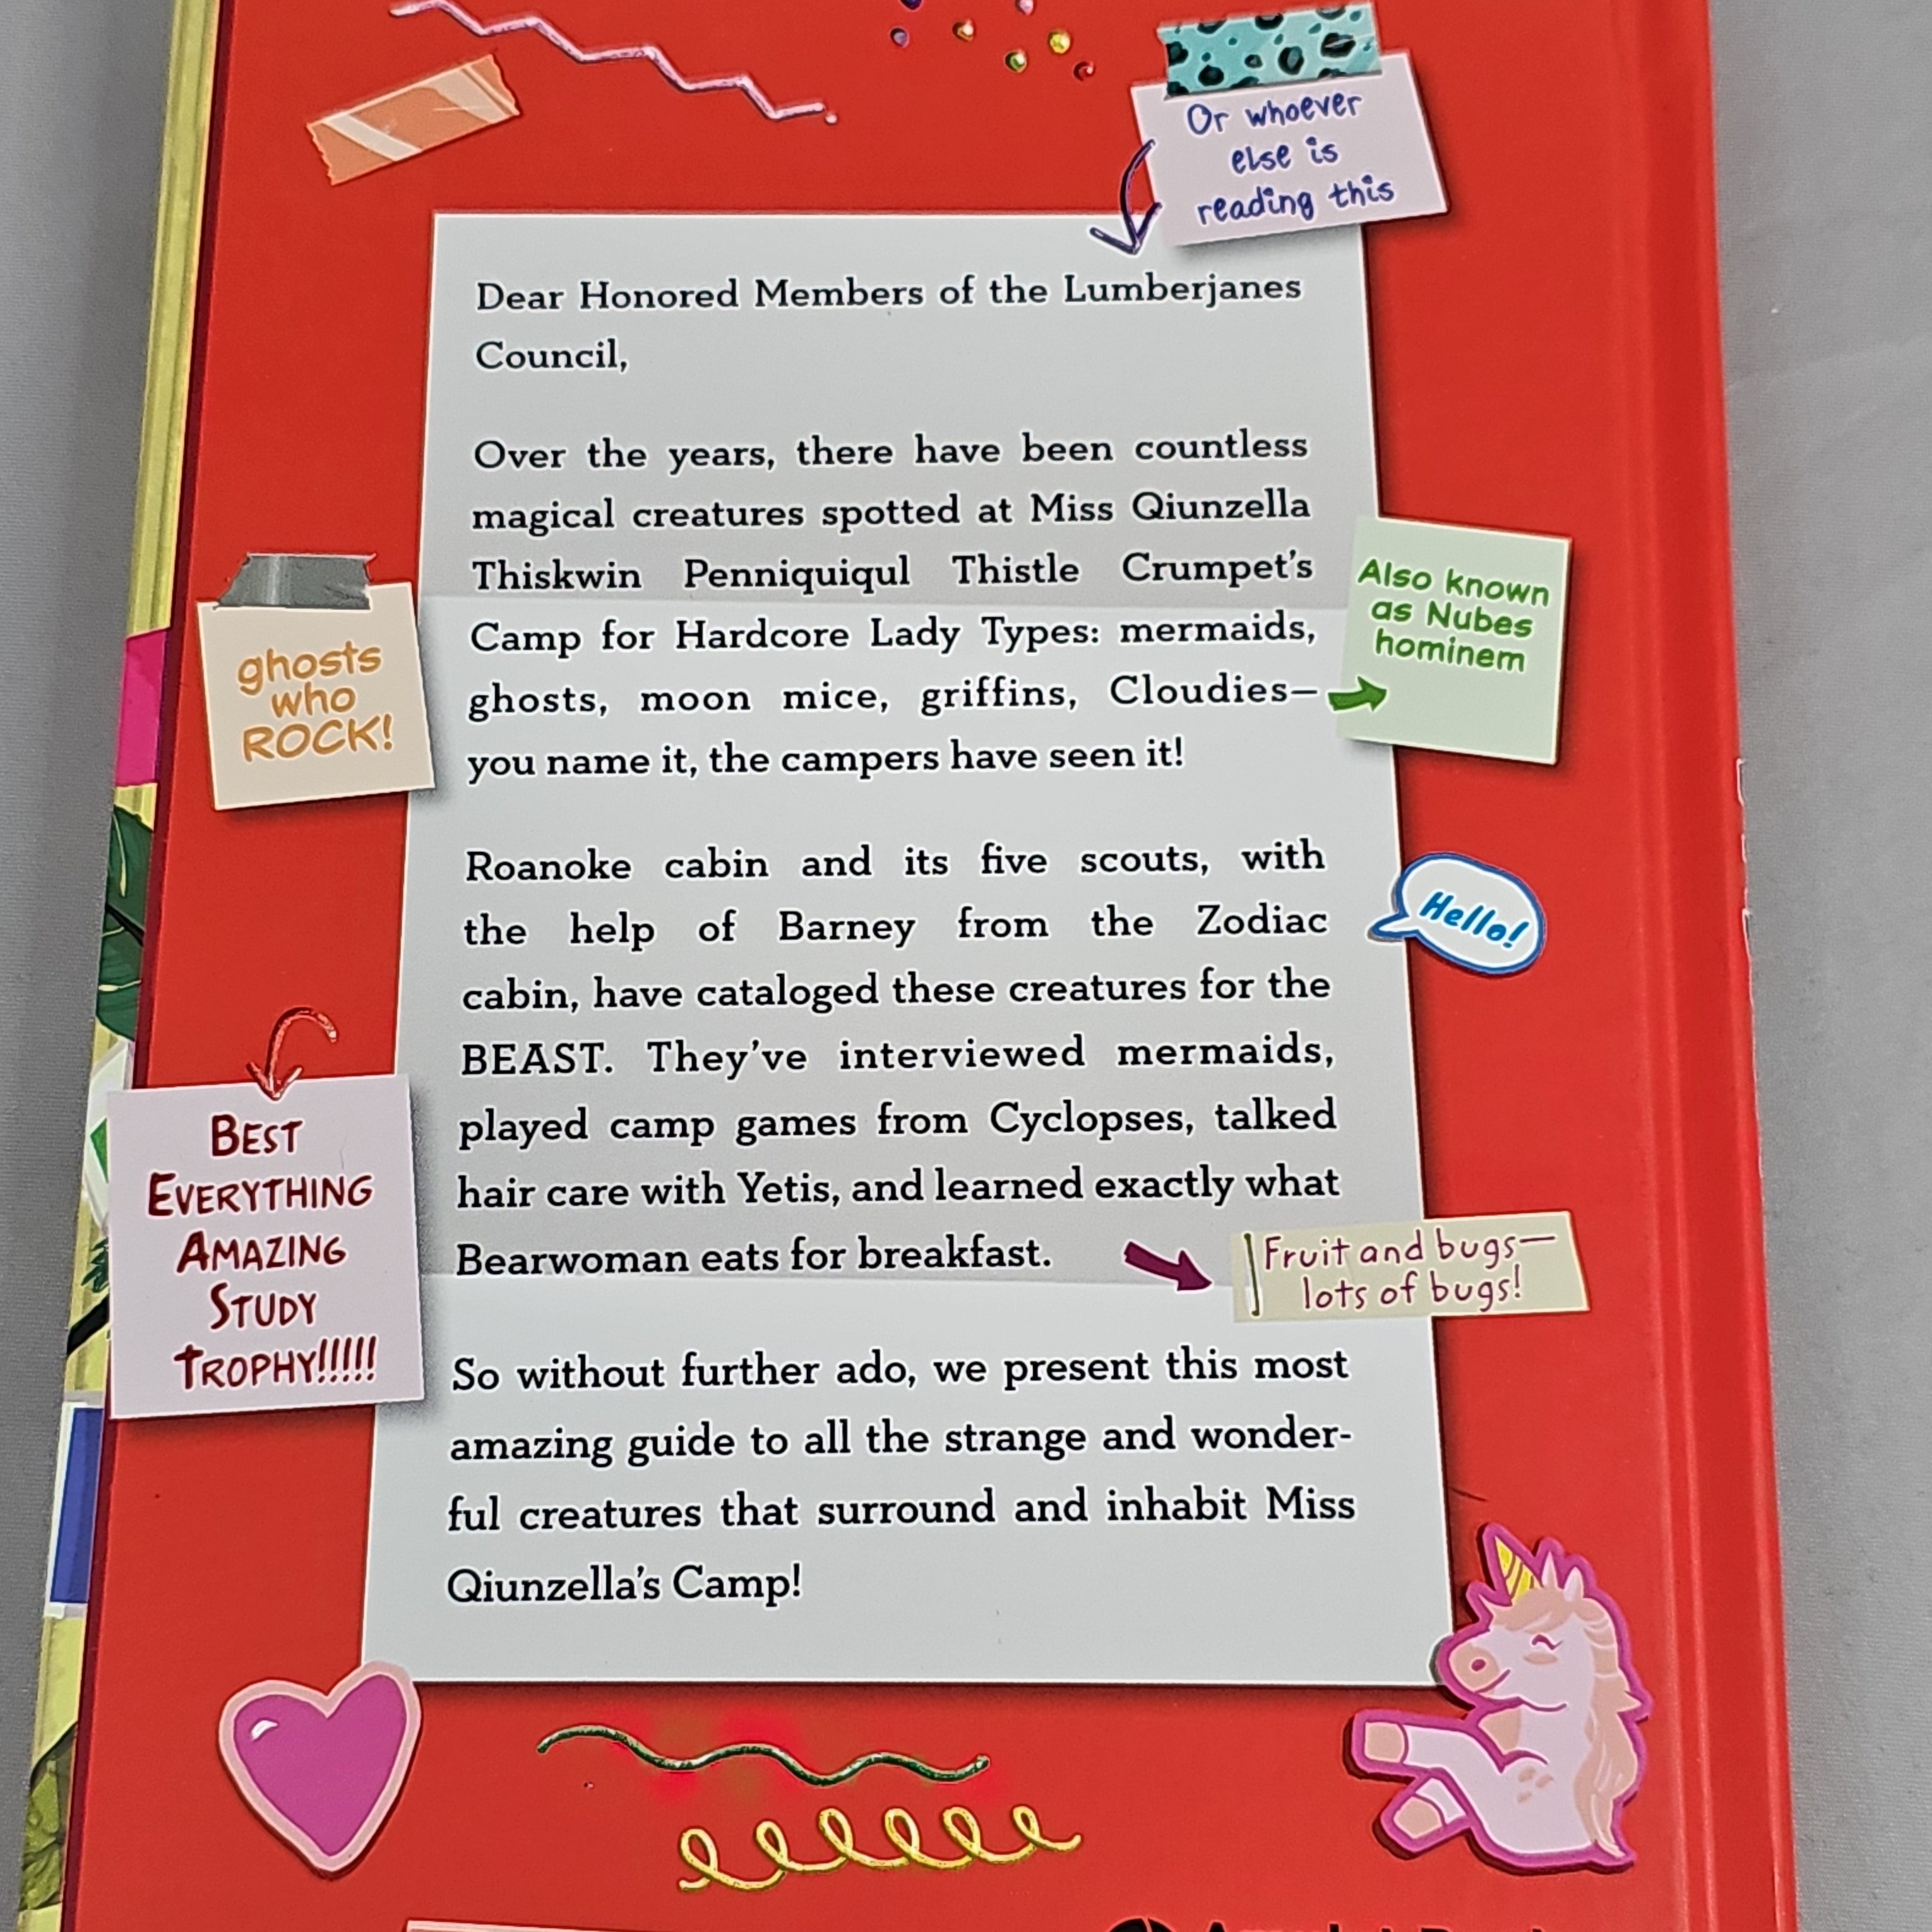 Or whoever
else is
reading this
Dear Honored Members of the Lumberjanes
Council,
Over the years, there have been countless
magical creatures spotted at Miss Qiunzella
Thiskwin Penniquiqul Thistle Crumpet's
Camp for Hardcore Lady Types: mermaids,
ghosts, moon mice, griffins, Cloudies—
you name it, the campers have seen it!
Also known
as Nubes
hominem
ghosts
who
ROCK!
Roanoke cabin and its five scouts, with
the help of Barney from the Zodiac
cabin, have cataloged these creatures for the
BEAST. They've interviewed mermaids,
played camp games from Cyclopses, talked
hair care with Yetis, and learned exactly what
Bearwoman eats for breakfast.
Hello!
BEST
EVERYTHING
AMAZING
STUDY
TROPHY!!!!!
Fruit and bugs—
lots of bugs!
So without further ado, we present this most
amazing guide to all the strange and wonder-
ful creatures that surround and inhabit Miss
Qiunzella's Camp!